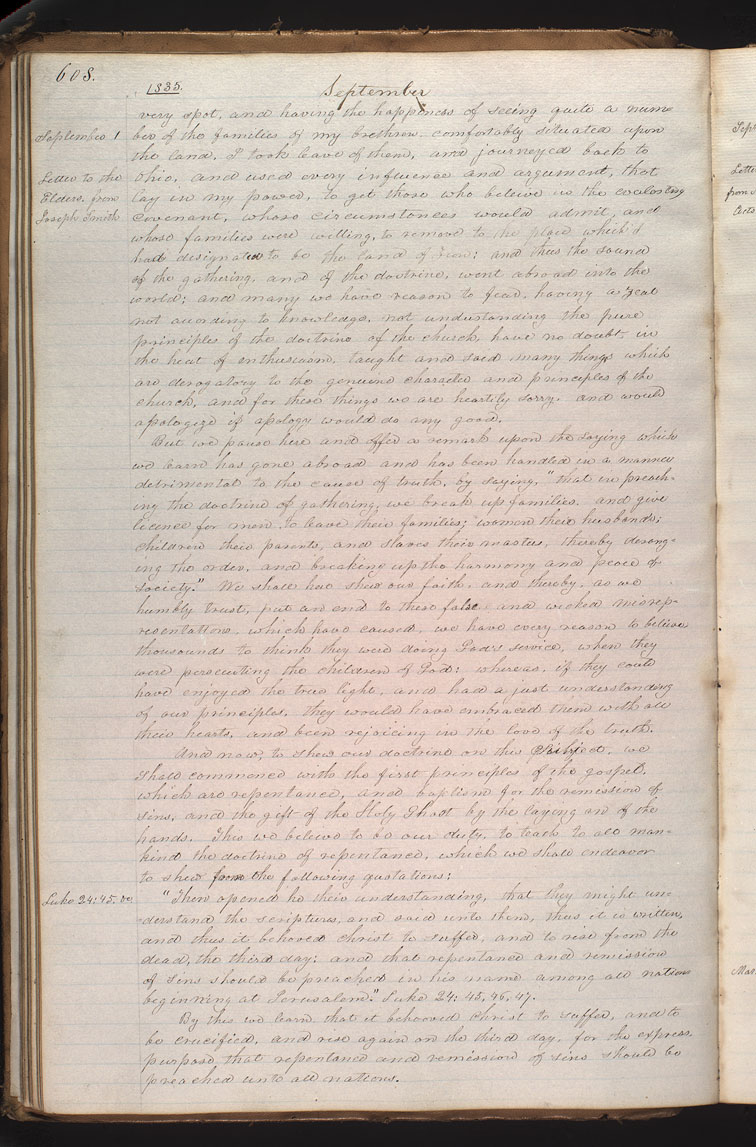 608.
1835.
September
very spot, and having the happiness of seeing quite a num-
September 1
ber of the families of my brethren comfortably situated upon
the land, I took leave of them, and journeyed back to
Letter to the
Ohio, and used every influence and argument, that
Elders, from
lay in my power, to get those who believe in the everlasting
Joseph Smith
covenant, whose circumstances would admit, and
whose families were willing, to remove to the place which I
had designated to be the land of Zion: and thus the sound
of the gathering, and of the doctrine, went abroad into the
world; and many we have reason to fear, having a zeal
not according to knowledge, not understanding the pure
principles of the doctrine of the church, have no doubt, in
the heat of enthusiasm, taught and said many things which
are derogatory to the genuine character and principles of the
church, and for these things we are heartily sorry, and would
apologize if apology would do any good.
But we pause here and offer a remark upon the saying which
we learn has gone abroad and has been handled in a manner
detrimental to the cause of truth, by saying, "that in preach-
ing the doctrine of gathering, we break up families, and give
licence for men to leave their families; women their husbands;
children their parents, and slaves their masters, thereby derang-
ing the order, and breaking up the harmony and peace of
society." We shall here shew our faith, and thereby, as we
humbly trust, put an end to these false and wicked misrep-
resentations, which have caused, we have every reason to believe
thousands to think they were doing God's service, when they
were persecuting the children of God: whereas, if they could
have enjoyed the true light, and had a just understanding
of our principles, they would have embraced them with all
their hearts, and been rejoicing in the love of the truth.
And now, to shew our doctrine on this subject, we
shall commence with the first principles of the gospel,
which are repentance, and baptism for the remission of
sins, and the gift of the Holy Ghost by the laying on of the
hands. This we believe to be our duty, to teach to all man-
kind the doctrine of repentance, which we shall endeavor
to shew from the following quotations:
Luke 24:45.
"Then opened he their understanding, that they might un-
derstand the scriptures, and said unto them, thus it is written,
and thus it behoved Christ to suffer, and to rise from the
dead, the third day; and that repentance and remission
of sins should be preached in his name among all nations
beginning at Jerusalem." Luke 24: 45, 46, 47.
By this we learn that it behooved Christ to suffer, and to
be crucified, and rise again on the third day, for the express
purpose that repentance and remission of sins should be
preached unto all nations.